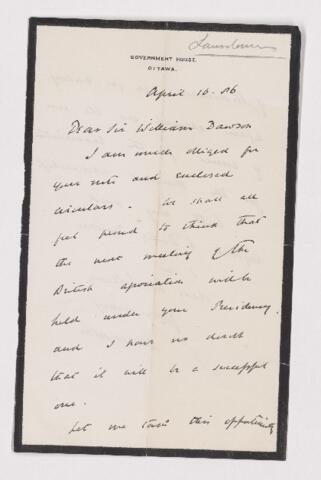 Lansdowne
GOVERNMENT HOUSE,
OTTAWA.
April 16. 86
Dear Sir William Dawson
I am much obliged for
your note and enclosed
circulars. We shall all
feel proud to think that
the next meeting of the
British Association will be
held under your Presidency
and I have no doubt
that it will be a successful
one.
Let me take this opportunity